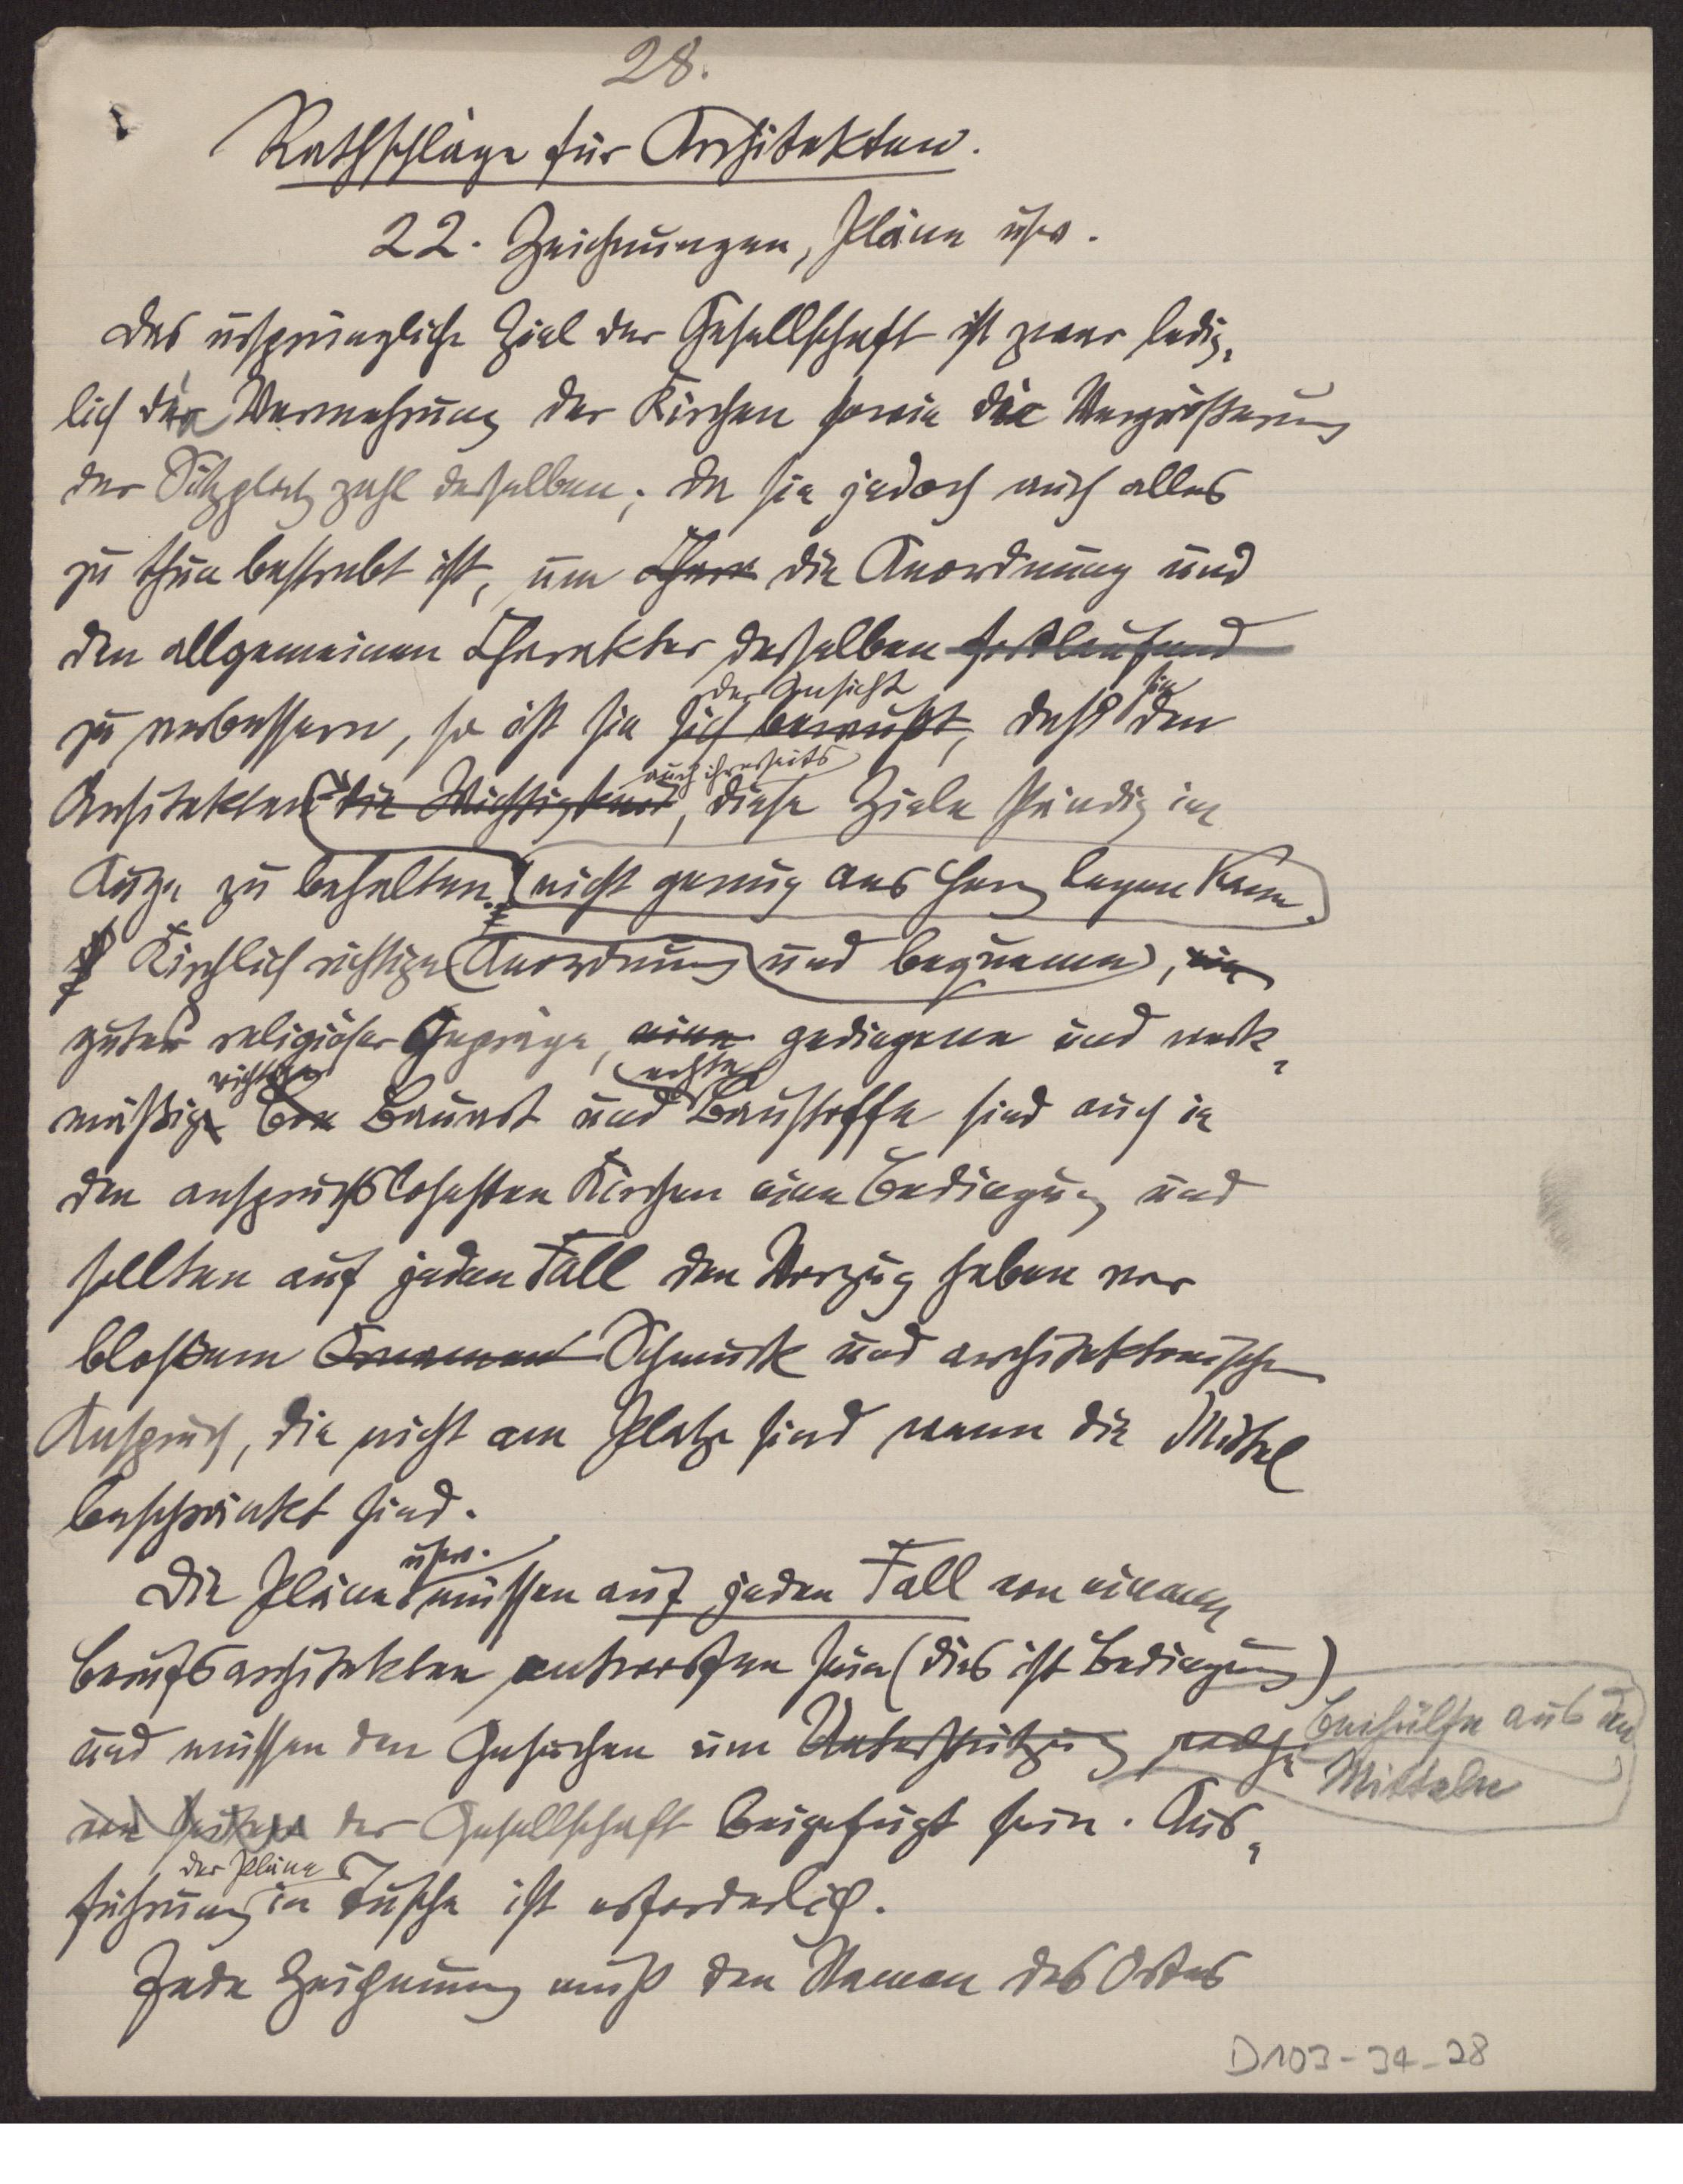 28.
Rathschläge für Architekten.
22. Zeichnungen, Pläne usw.
Das ursprüngliche Ziel der Gesellschaft ist zwar ledig-
lich die Vermehrung der Kirchen sowie die Vergrößerung
der Sitzplatzzahl derselben; da sie jedoch auch alles
zu thun bestrebt ist, um Chara die Anordnung und
den allgemeinen Charakter derselben fortlaufend
der Ansicht sie
zu verbessern, so ist sie sich bewußt, daß den
auch ihrerseits
Architekten die Wichtigkeit, diese Ziele ständig im
Auge zu behalten nicht genug ans Herz legen kann.
Kirchlich richtige Anordnung und bequeme, ein
guter religiöser Gepräge, eine gediegene und werk-
richtige echte
mäßige Bauart und Baustoffe sind auch in
den anspruchslosesten Kirchen eine Bedingung und
sollten auf jeden Fall den Vorzug haben vor
bloßem Ornament Schmuck und architektonischen
Anspruch, die nicht am Platze sind wenn die Mittel
beschränkt sind.
usw.
Die Pläne müssen auf jeden Fall von einem
Berufsarchitekten entworfen sein (dies ist Bedingung)
und müssen den Gesuchen um Unterstützung Beihülfe aus den
Mitteln
von Seiten der Gesellschaft beigefügt sein. Aus-
der Pläne
führung in Tusche ist erforderlich.
Jede Zeichnung muß den Namen des Ortes
D103-34-28